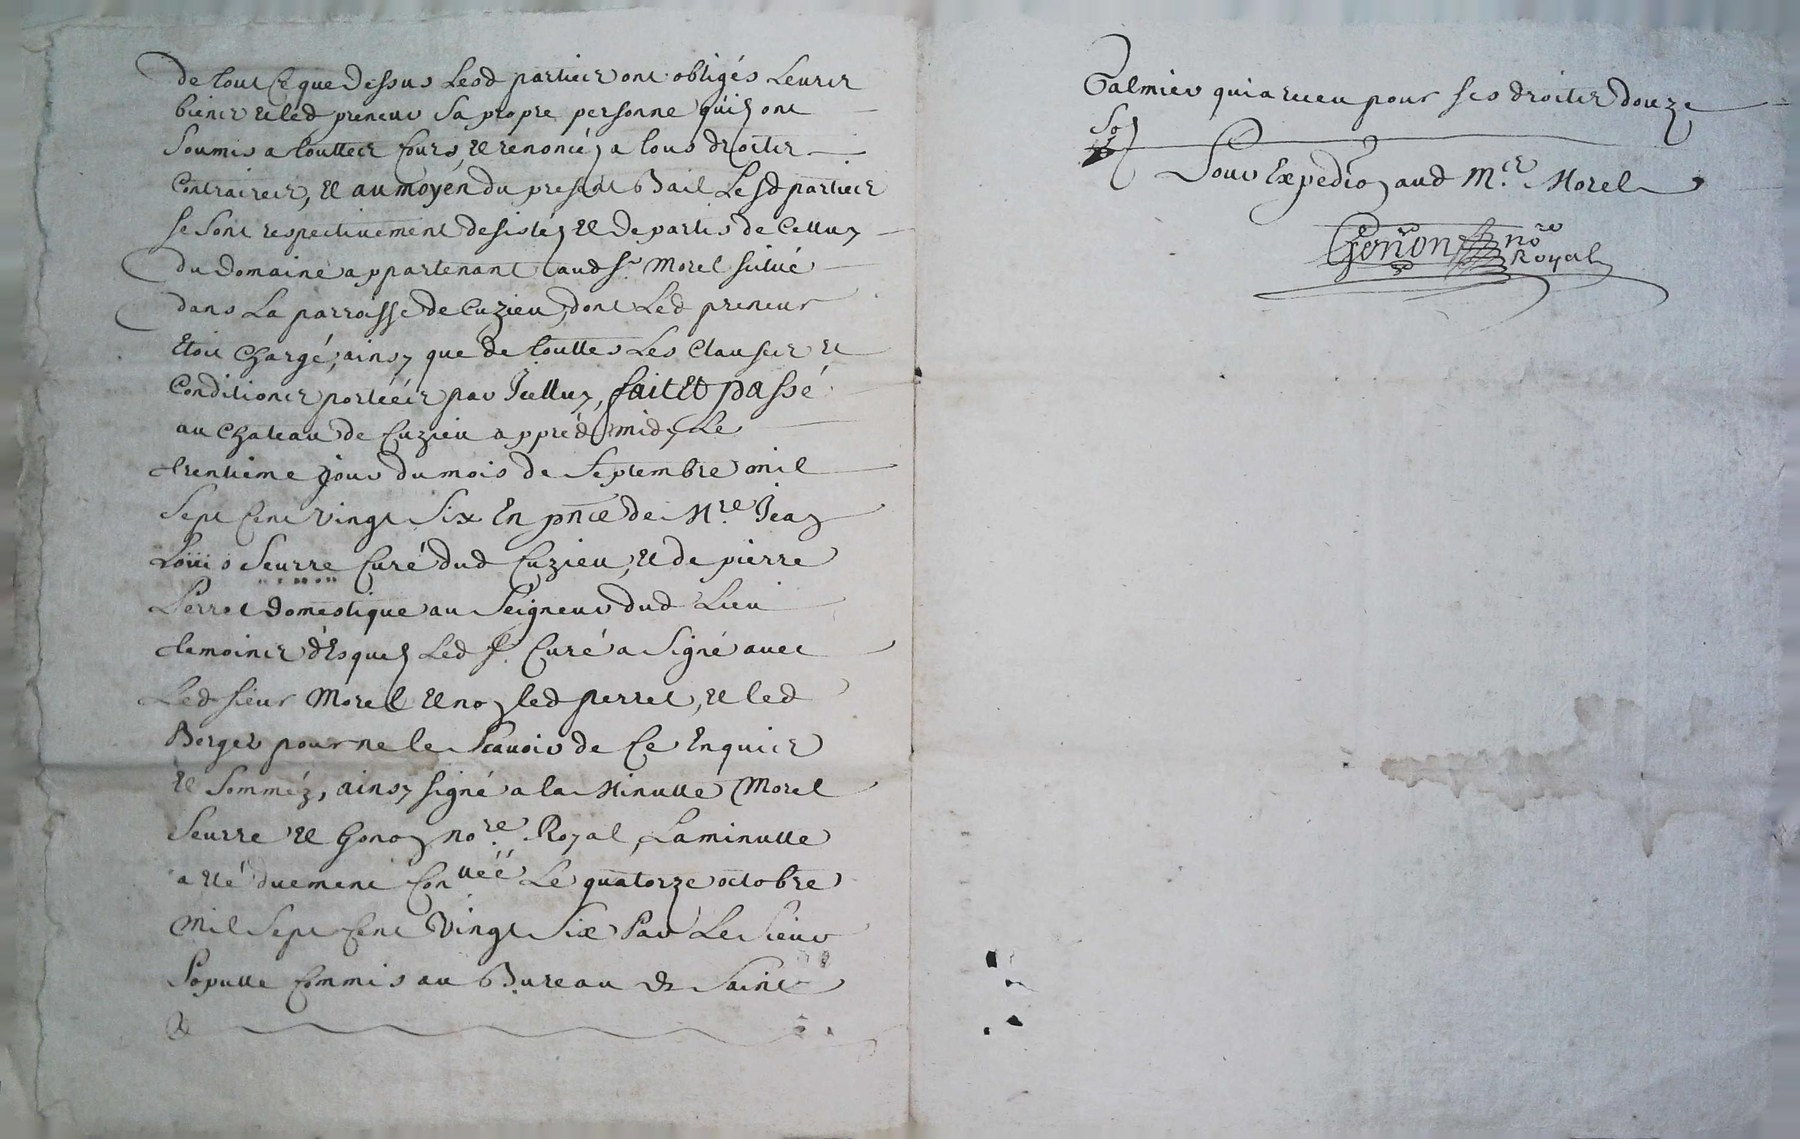 de tout ce que dessus lesd parties ont obligés leurs
biens et led preneur sa propre personne quils ont
soumis a touttes cours, et renoncé a tous droits
contraires, et au moyén du presént Bail Lesd parties
se sont respectivement desistés et departis de celluy
du domaine appartenant aud sr. Morel situé
dans la parroisse de Cuzieu, dont led preneur
étoit chargé, ainsy que de touttes Les clauses et
conditions portéés par icelluy, fait et passé
au chateau de Cuzieu apprés midy Le
trentieme jour du mois de septembre mil
sept cent vingt six en pnce de Mre. Jean
Loüis Seurre Curé dud Cuzieu, et de pierre
Perret domestique au seigneur dud Lieu
temoins désquels Led sr. Curé a signé avec
Led sieur Morel et non led perret, et led
Berger pour ne le scavoir de ce enquis
et sommés, ainsy signé a la minutte Morel
Seurre et Gonon nore. Royal, La minutte
a été duement conuéé Le quatorze octobre
mil sept cent vingt six Par Le sieur
Populle commis au Bureau de saint
Galmier qui a receu pour ses droits douze
sols
Pour Expedion aud Mr. Morel
Gonon nore
Royal